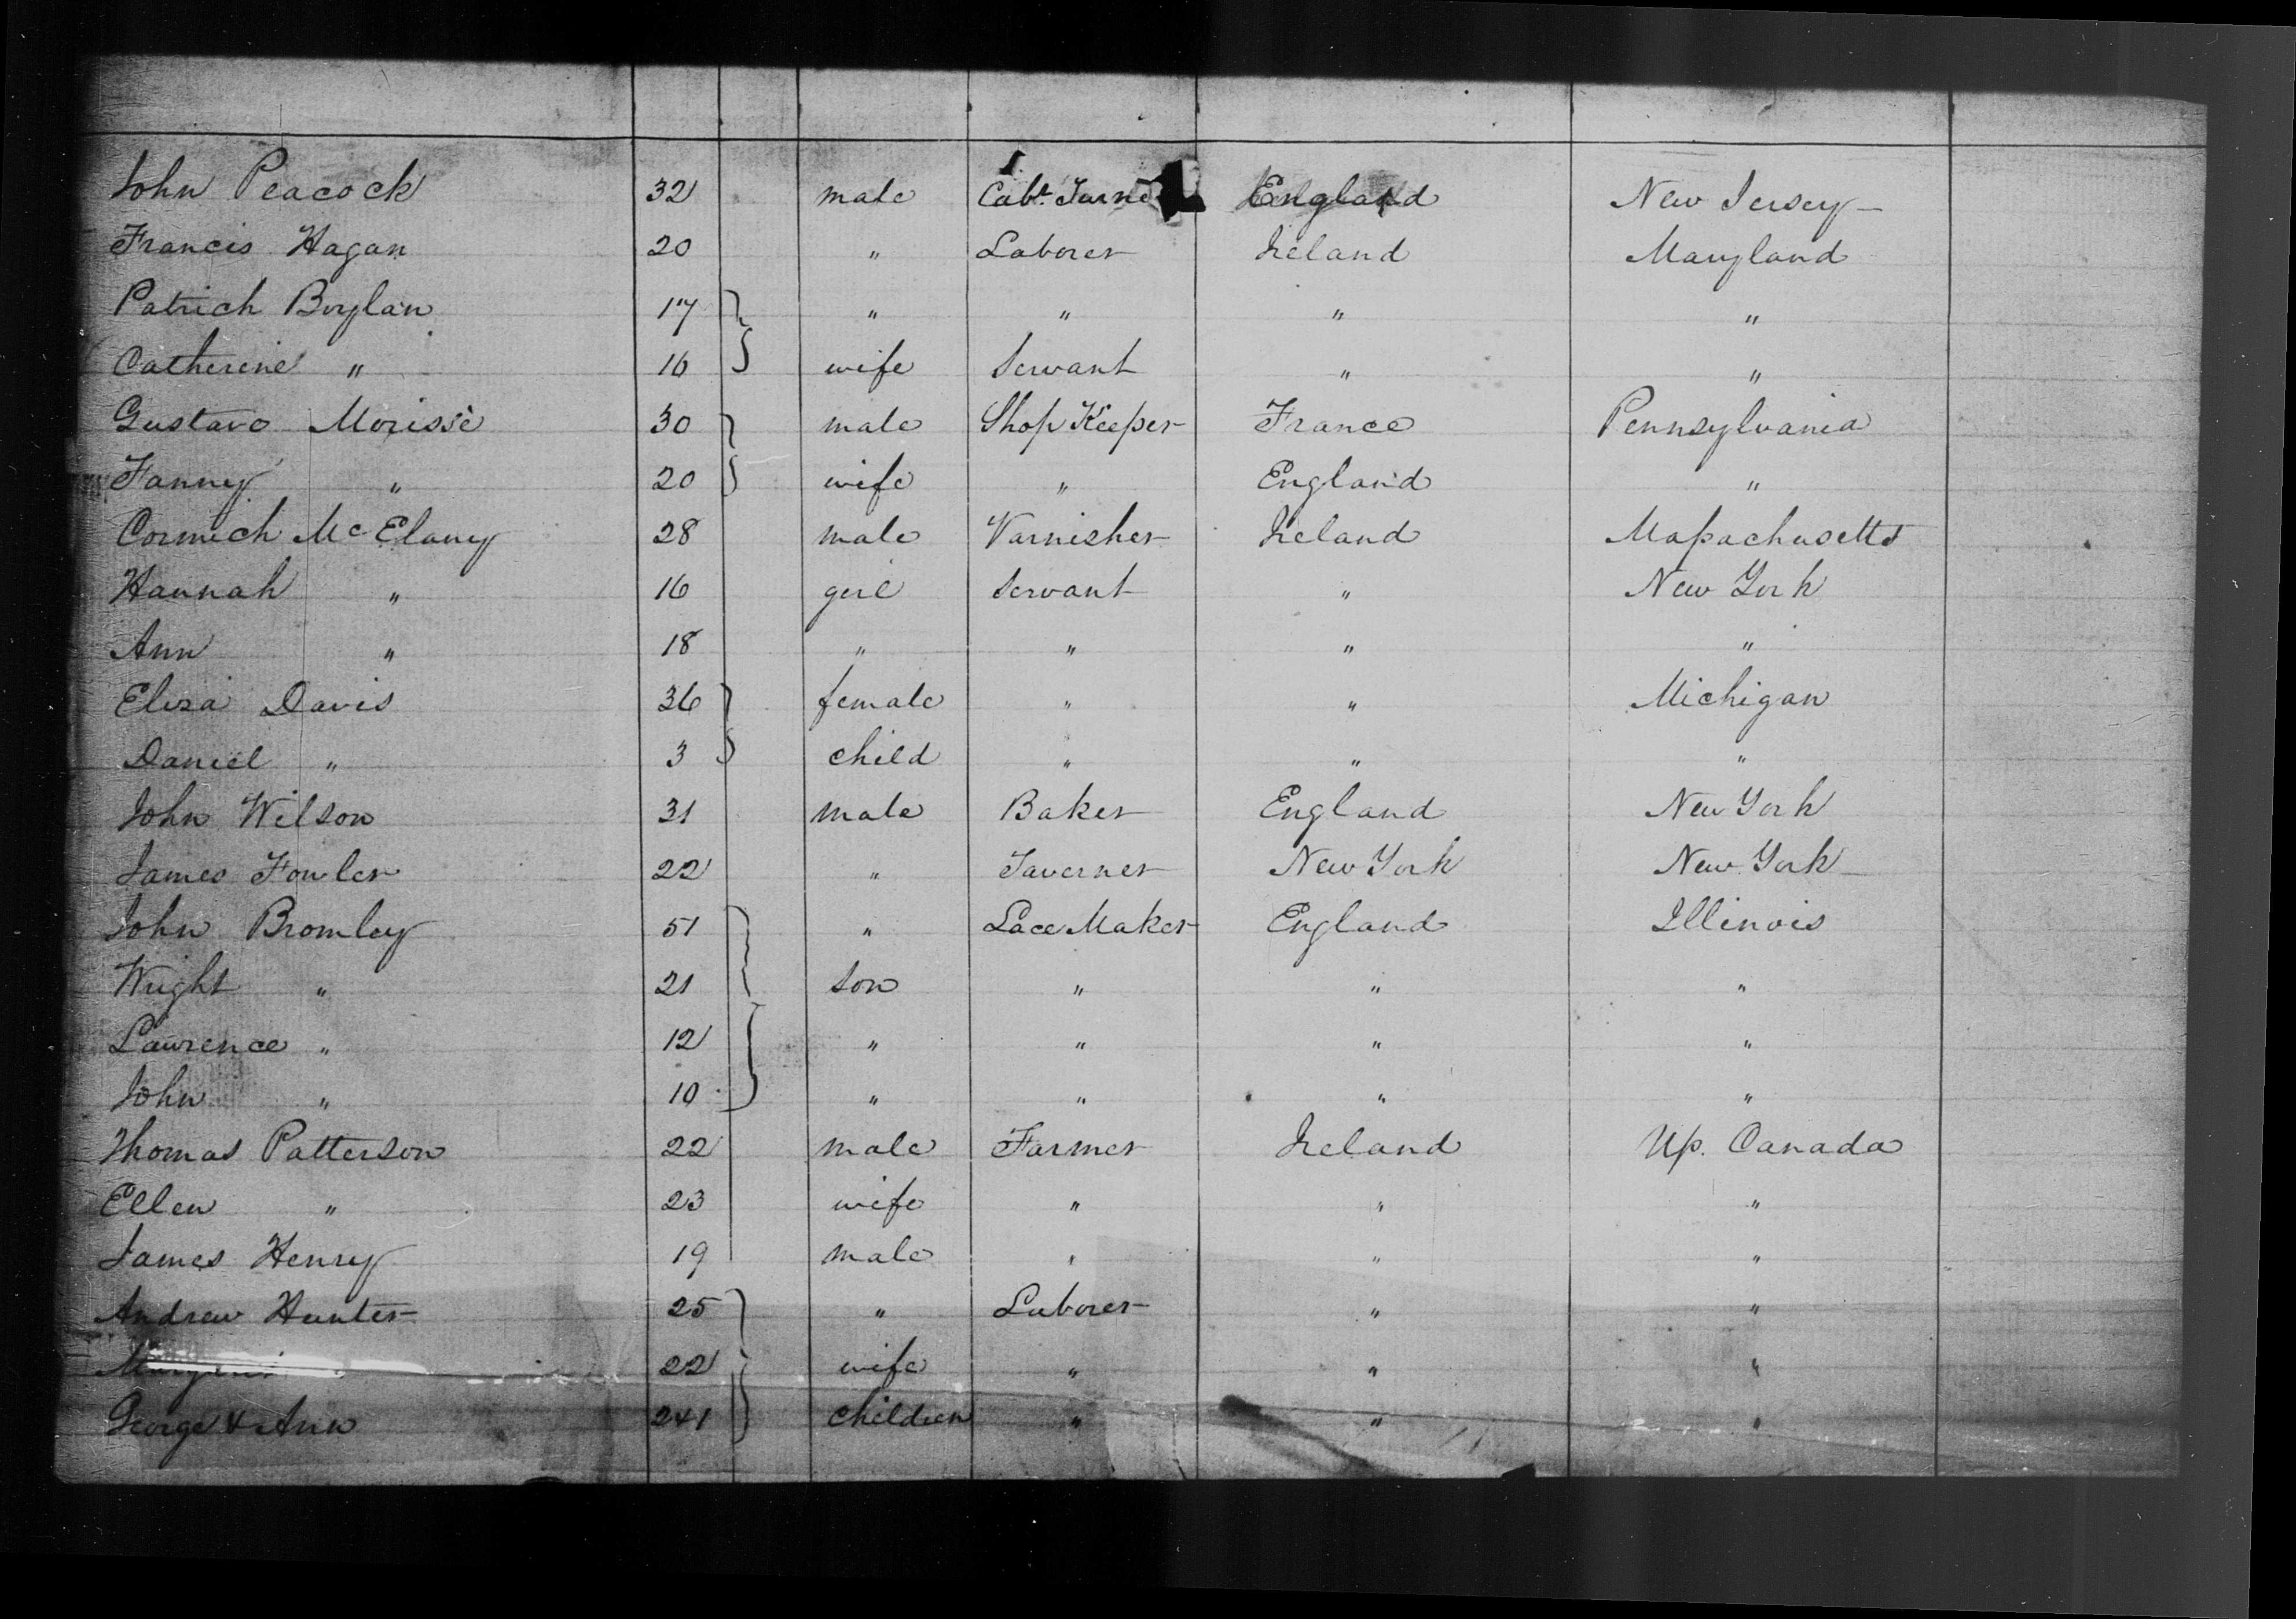 John Peacock 32 male Cabt. England New Jersey
Francis Hagan 20 " Laborer Ireland Maryland
Patrich Boylan 17 " " " "
Catherine " 16 wife Servant " "
Gustave Morissè 30 male Shop Keeper France Pennsylvania
Fanny " 20 wife " England "
Cormich Mc Elaney 28 male Varnisher Ireland Massachusetts
Hannah " 16 girl Servant " New York
Ann " 18 " " " "
Eliza Davis 36 female " " Michigan
Daniel " 3 child " " "
John Wilson 31 male Baker England New York
James Fowler 22 " Taverner New York New York
John Bromley 51 " Lace Maker England Illinois
Wright " 21 son " " "
Lawrence " 12 " " " "
John " 10 " " " "
Thomas Patterson 22 male Farmer Ireland Up. Canada
Ellen " 23 wife " " "
James Henry 19 male " " "
Andrew Hunter 25 " Laborer " "
22 wife " " "
George & Ann 2 & 1 children " " "